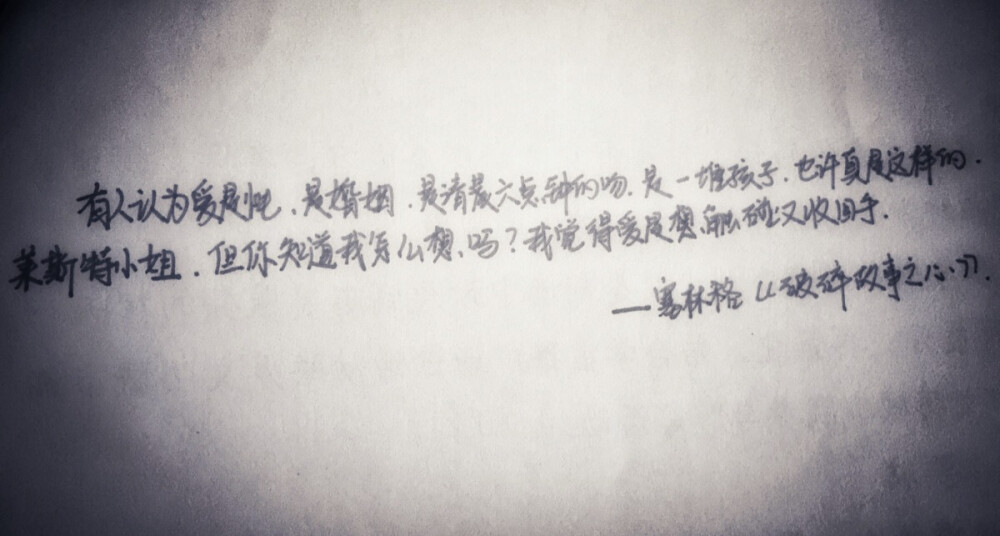 有人认为爱是性、是婚姻、是清晨六点钟的吻、是一堆孩子、也许真是这样的.
莱斯特小姐、但你知道我怎么想吗？我觉得爱是想触碰又收回手.
——塞林格《破碎故事之心》.